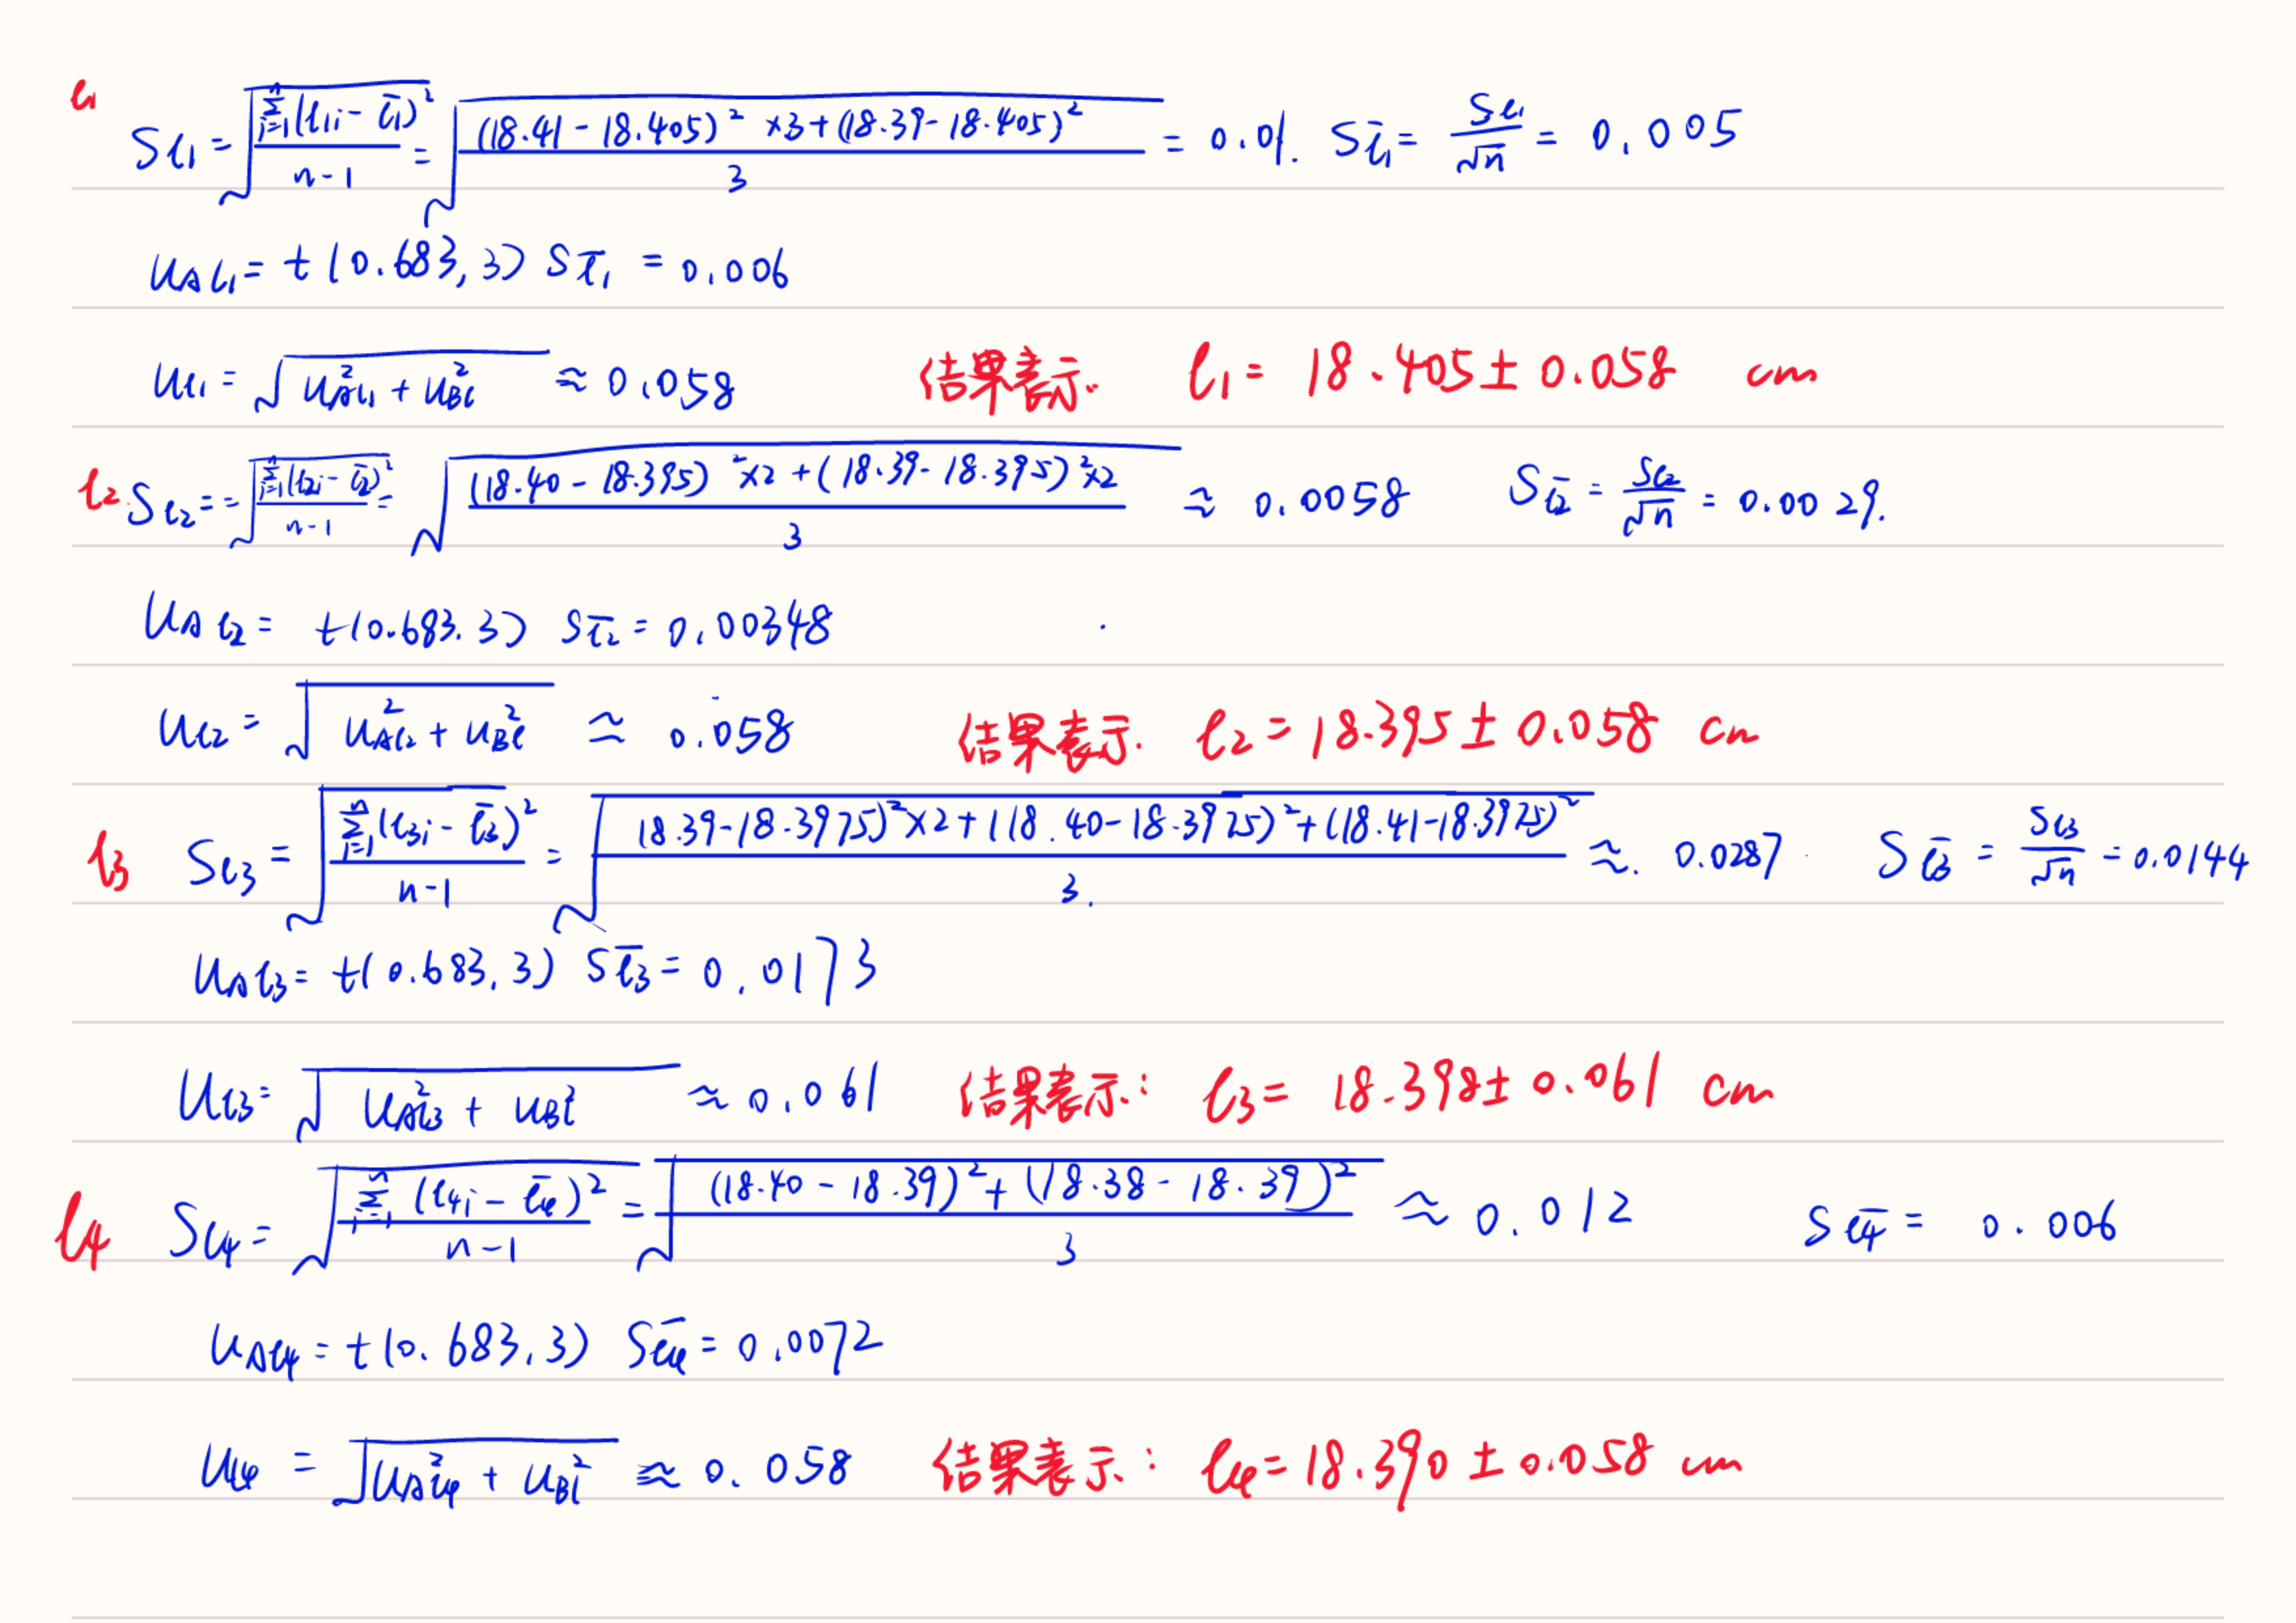 l₁
S_{l₁} = √(∑_{i=1}^{n}(l_{1i} - l̄₁)² / (n-1)) = √(((18.41 - 18.405)² ×3 + (18.39 - 18.405)²) / 3) = 0.01. S_{l̄₁} = S_{l₁}/√n = 0.005
u_{Al₁} = t(0.683, 3) S_{l̄₁} = 0.006
u_{l₁} = √(u²_{Al₁} + u²_{Bl}) ≈ 0.058 结果表示. l₁ = 18.405 ± 0.058 cm
l₂ S_{l₂} = = √(∑_{i=1}^{n}(l_{2i} - l̄₂)² / (n-1)) = √(((18.40 - 18.395)² ×2 + (18.39 - 18.395)² ×2) / 3) ≈ 0.0058 S_{l̄₂} = S_{l₂}/√n = 0.0029.
u_{Al₂} = t(0.683. 3) S_{l̄₂} = 0.00348
u_{l₂} = √(u²_{Al₂} + u²_{Bl}) ≈ 0.058 结果表示. l₂ = 18.395 ± 0.058 cm
l₃ S_{l₃} = √(∑_{i=1}^{n}(l_{3i} - l̄₃)² / (n-1)) = √((18.39 - 18.3975)² ×2 + ((18.40 - 18.3975)² + ((18.41 - 18.3975)² / 3.) ≈. 0.0287 S_{l̄₃} = S_{l₃}/√n = 0.0144
u_{Al₃} = t(0.683, 3) S_{l̄₃} = 0.0173
u_{l₃} = √(u²_{Al₃} + u²_{Bl}) ≈ 0.061 结果表示: l₃ = 18.398 ± 0.061 cm
l₄ S_{l₄} = √(∑_{i=1}^{n}(l_{4i} - l̄₄)² / (n-1)) = √(((18.40 - 18.39)² + (18.38 - 18.39)²) / 3) ≈ 0.012 S_{l̄₄} = 0.006
u_{Al₄} = t(0.683, 3) S_{l̄₄} = 0.0072
u_{l₄} = √(u²_{Al₄} + u²_{Bl}) ≈ 0.058 结果表示: l₄ = 18.390 ± 0.058 cm